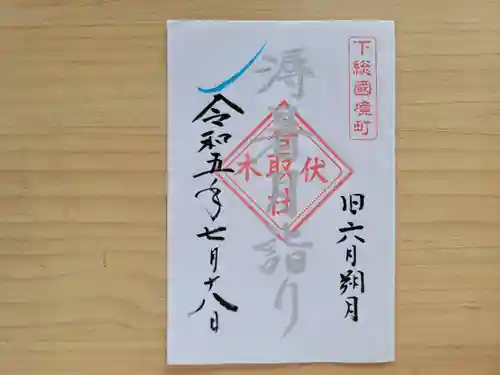 下総國境町
旧六月朔月
溽暑月詣り
伏木
香取社
令和五年七月十八日